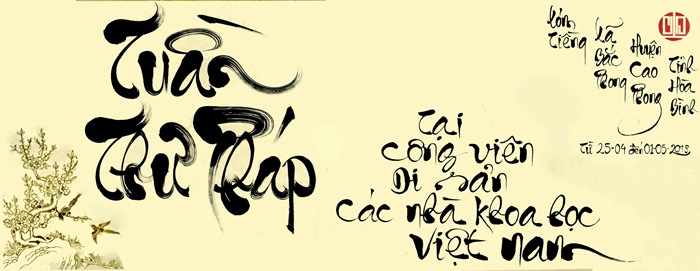 Tuần
Thư Pháp
Tại
công viên
Di sản
các nhà khoa học
Việt Nam
Xóm
Tiềng
Xã
Bắc
Phong
Huyện
Cao
Phong
Tỉnh
Hòa
Bình
Từ 25-04 đến 01-05-2018